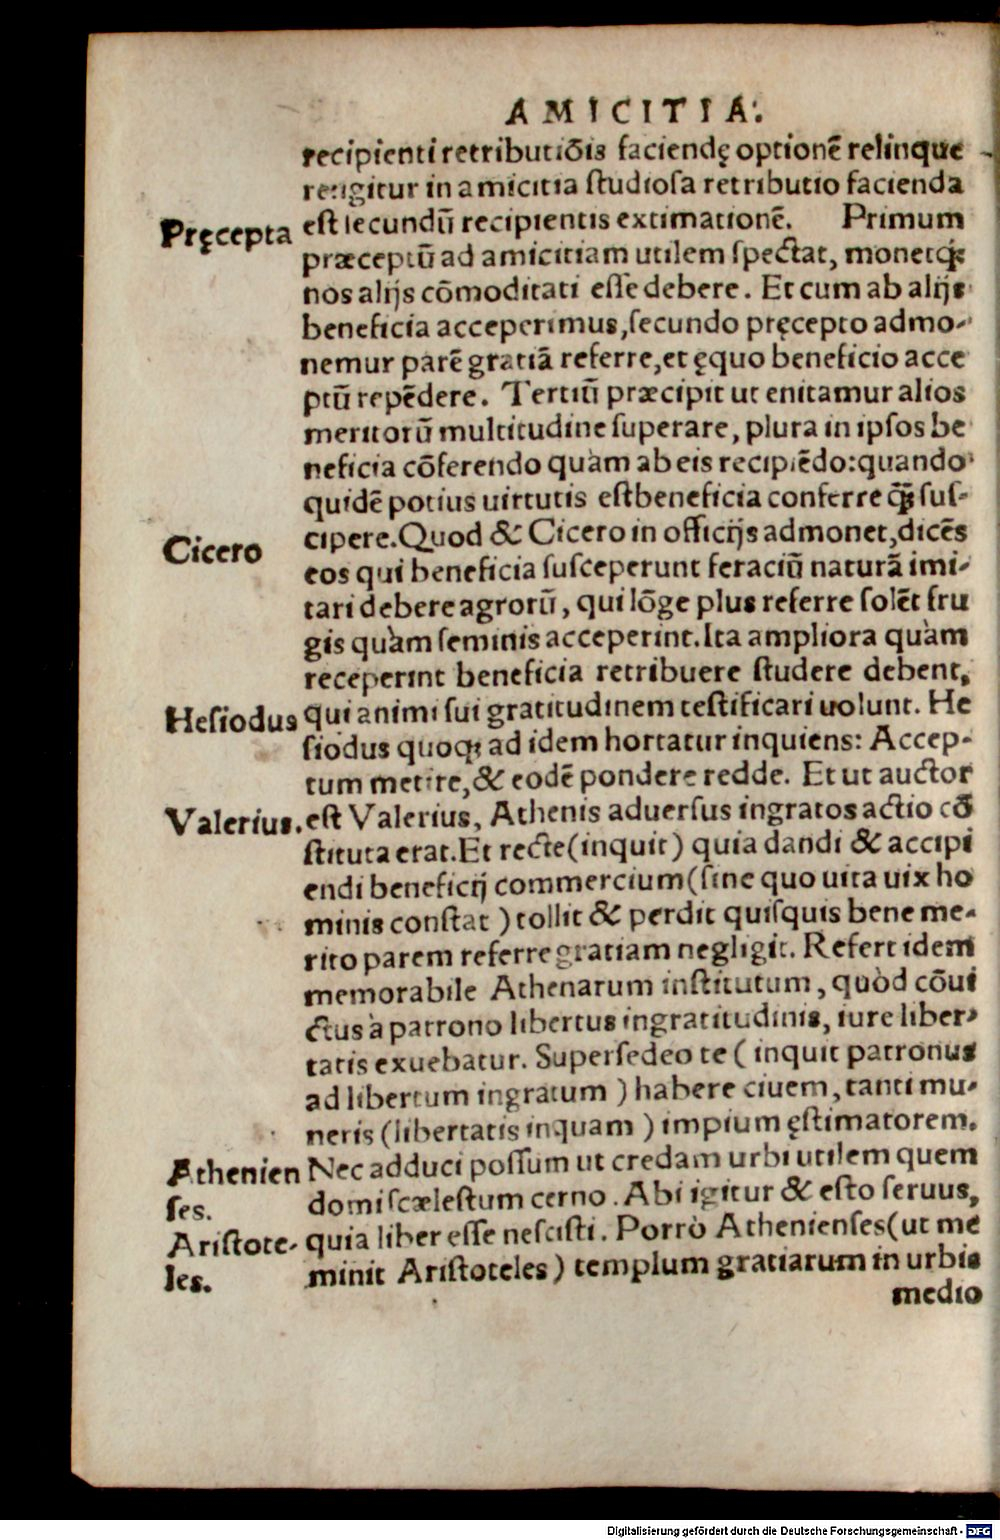 AMICITIA.
recipienti retributiōis faciendę optionē relinque
reꝛigitur in amicitia ſtudioſa retributio facienda
Pręcepta
eſt ſecundū recipientis extimationē. Primum
præceptū ad amicitiam utilem ſpectat, monetq́;
nos alijs cōmoditati eſſe debere. Et cum ab alijs
beneficia acceperimus, ſecundo pręcepto admo-
nemur parē gratiā referre, et ęquo beneficio acce
ptū repēdere. Tertiū præcipit ut enitamur alios
meritorū multitudine ſuperare, plura in ipſos be
neficia cōferendo quàm ab eis recipiēdo: quando
quidē potius uirtutis eſt beneficia conferre q̄ꝫ ſuſ-
Cicero
cipere. Quod & Cicero in officijs admonet, dicēs
eos qui beneficia ſuſceperunt feraciū naturā imi-
tari debere agrorū, qui lōge plus referre ſolēt fru
gis quàm ſeminis acceperint. Ita ampliora quàm
receperint beneficia retribuere ſtudere debent,
Heſiodus
qui animi ſui gratitudinem teſtificari uolunt. He
ſiodus quoq; ad idem hortatur inquiens: Accep-
tum metire, & eodē pondere redde. Et ut auctor
Valerius.
eſt Valerius, Athenis aduerſus ingratos actio cō
ſtituta erat. Et recte (inquit) quia dandi & accipi
endi beneficij commercium (ſine quo uita uix ho
minis conſtat) tollit & perdit quiſquis bene me-
rito parem referre gratiam negligit. Refert idem
memorabile Athenarum inſtitutum, quòd cōui
ctus à patrono libertus ingratitudinis, iure liber-
tatis exuebatur. Superſedeo te (inquit patronus
ad libertum ingratum) habere ciuem, tanti mu-
neris (libertatis inquam) impium ęſtimatorem.
Athenien
Nec adduci poſſum ut credam urbi utilem quem
ſes.
domi ſcæleſtum cerno. Abi igitur & eſto ſeruus,
Ariſtote-
quia liber eſſe neſciſti. Porrò Athenienſes (ut me
les.
minit Ariſtoteles) templum gratiarum in urbis
medio
Digitalisierung gefördert durch die Deutsche Forschungsgemeinschaft - DFG